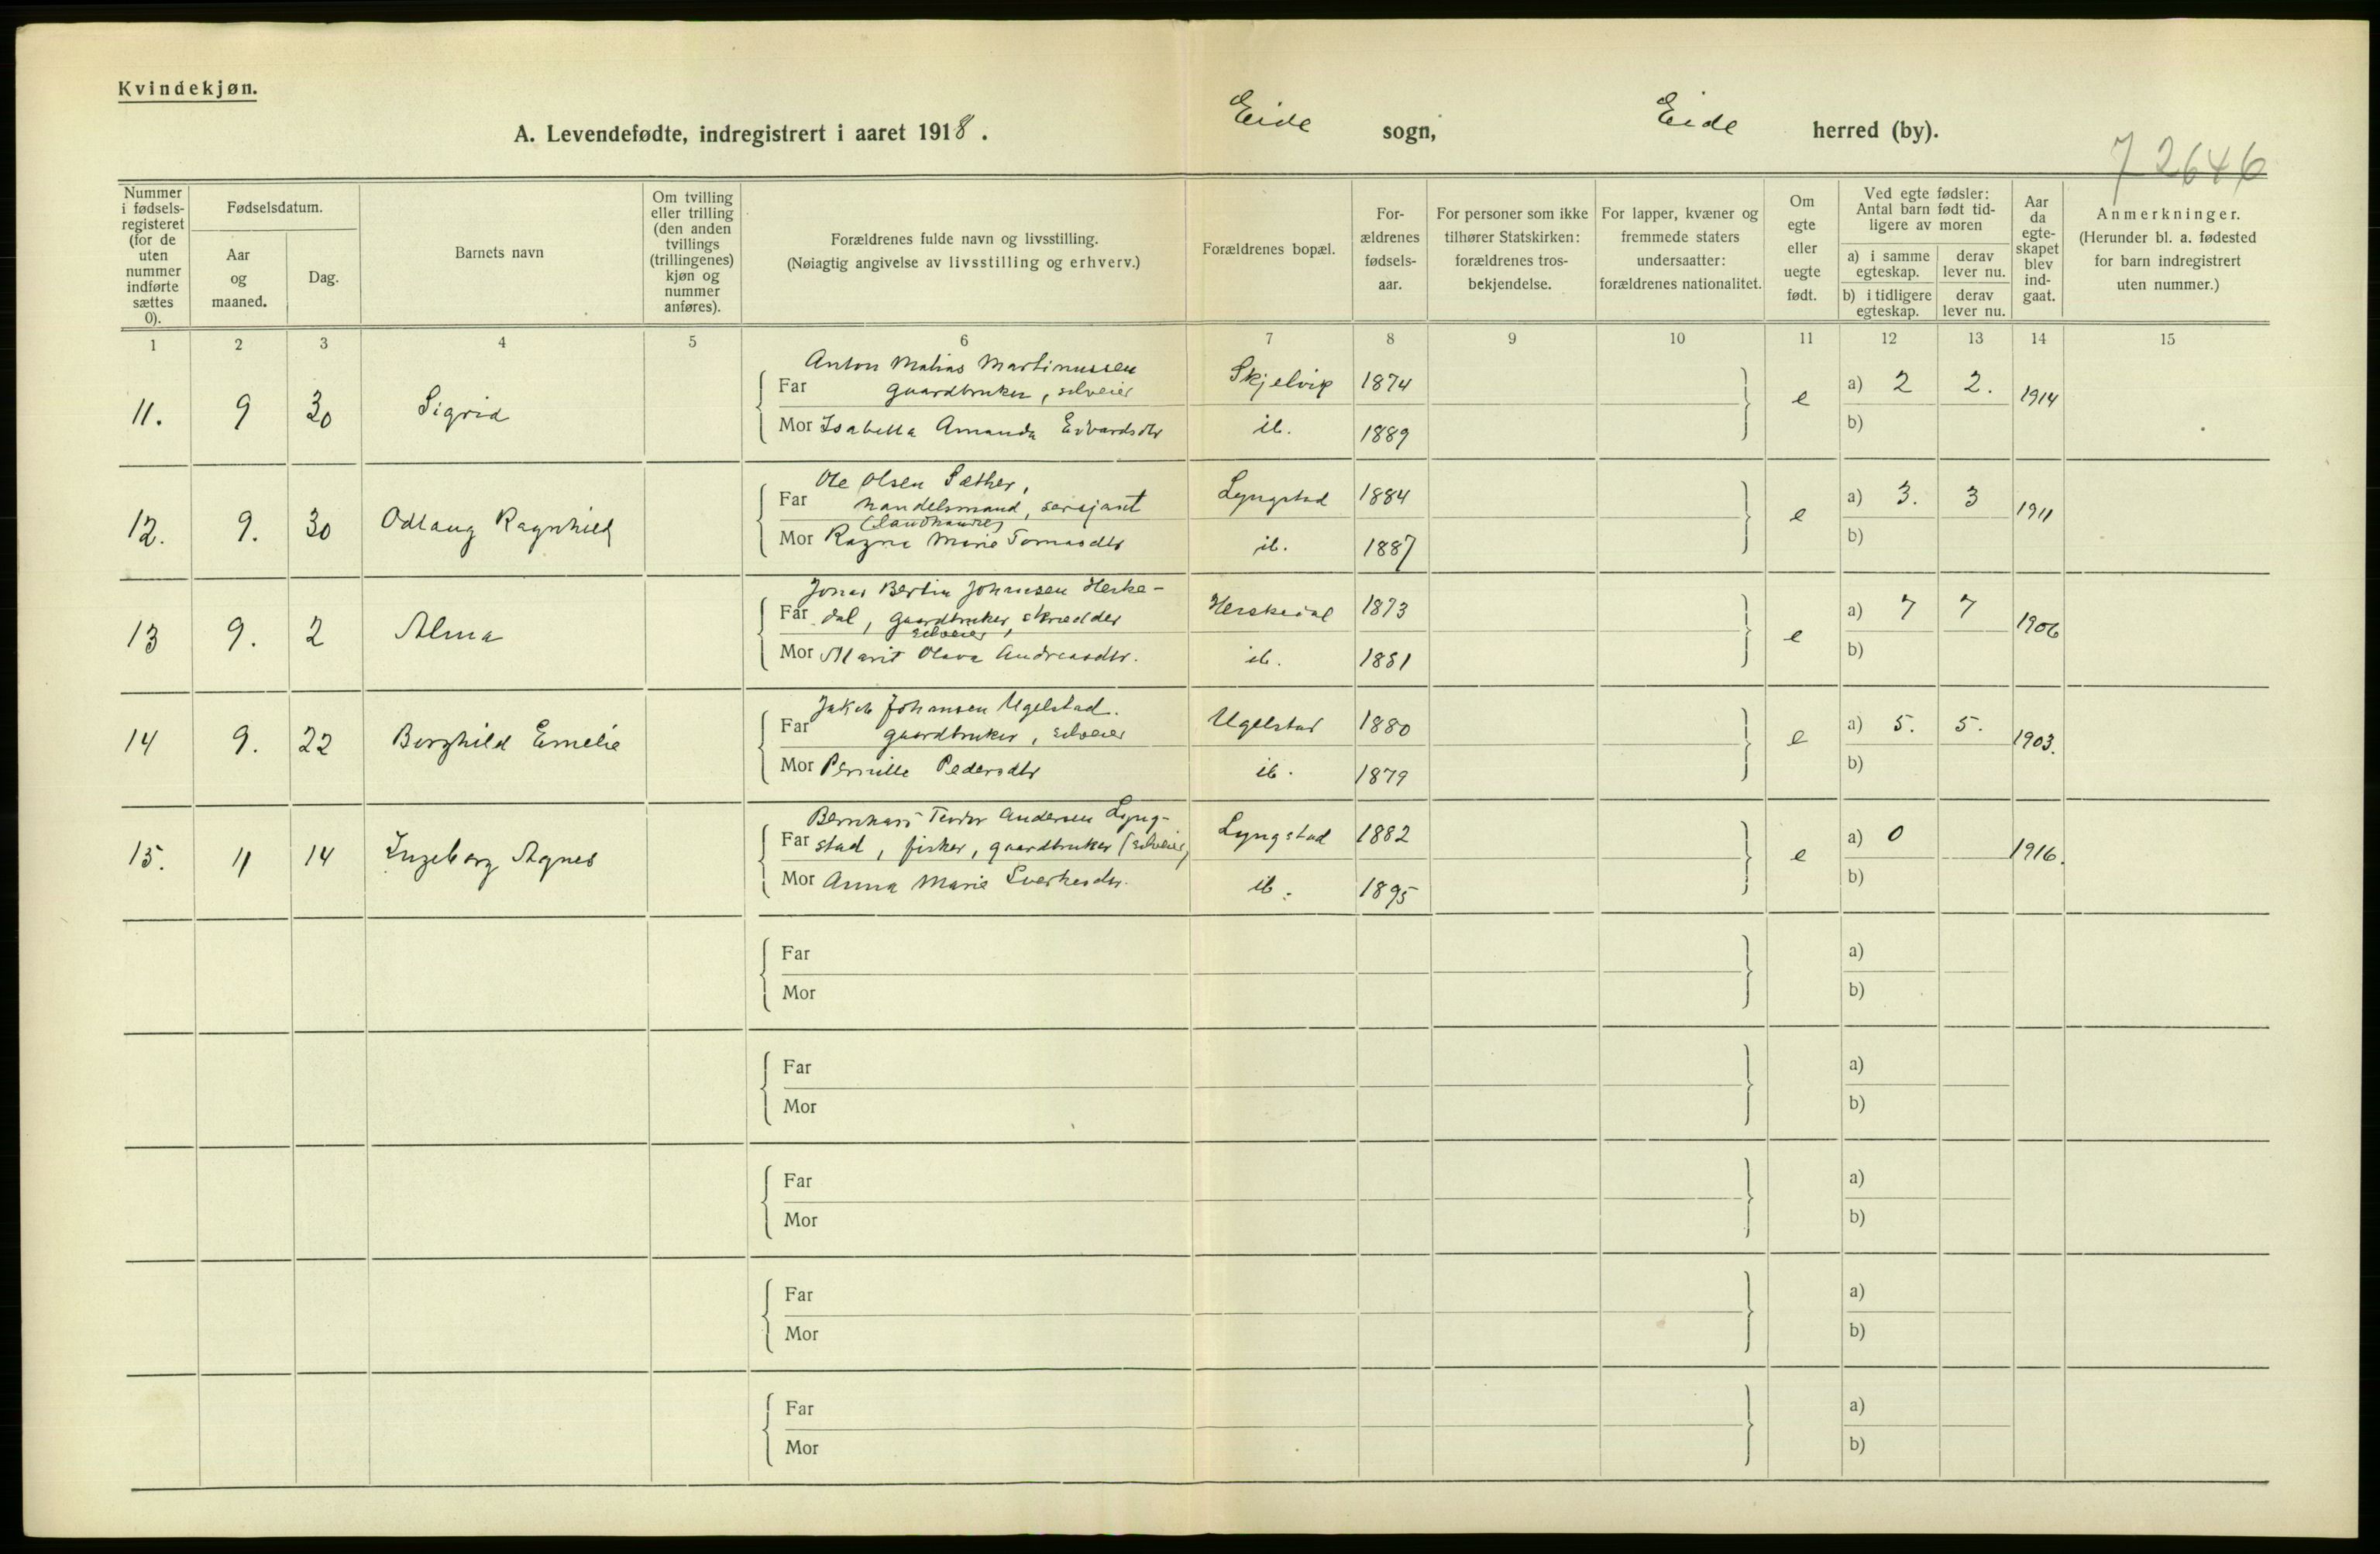 Kvindekjøn.
A. Levendefødte, indregistrert i aaret 1918. Eide sogn, Eide herred (by).
72646
Nummer i fødsels-registeret (for de uten nummer indførte sættes 0).
Fødselsdatum.
Aar og maaned.
Dag.
Barnets navn
Om tvilling eller trilling (den anden tvillings (trillingenes) kjøn og nummer anføres).
Forældrenes fulde navn og livsstilling.
(Nøiagtig angivelse av livsstilling og erhverv.)
Forældrenes bopæl.
For-ældrenes fødsels-aar.
For personer som ikke tilhører Statskirken: forældrenes tros-bekjendelse.
For lapper, kvæner og fremmede staters undersaatter: forældrenes nationalitet.
Om egte eller uegte født.
Ved egte fødsler: Antal barn født tid-ligere av moren
a) i samme egteskap. derav lever nu.
b) i tidligere egteskap. derav lever nu.
Aar da egte-skapet blev ind-gaat.
Anmerkninger.
(Herunder bl. a. fødested for barn indregistrert uten nummer.)
1 2 3 4 5 6 7 8 9 10 11 12 13 14 15
Anton Matias Martinussen
11. 9 30 Sigrid Far gaardbruker, selveier Skjelvik 1874 e a) 2 2. 1914
Mor Isabella Amanda Edvardsdtr ib. 1889 b)
Ole Olsen Sæther,
12. 9. 30 Odlaug Ragnhild Far handelsmand, sersjant Lyngstad 1884 e a) 3. 3 1911
(landhandler)
Mor Ragna Marie Tomasdtr ib. 1887 b)
Jonas Bertin Johansen Herske-
13 9. 2 Alma Far dal, gaardbruker, skrædder Herskedal 1873 e a) 7 7 1906
selveier
Mor Marit Olava Andreasdtr. ib. 1881 b)
Jakob Johansen Ugelstad.
14 9. 22 Borghild Emelie Far gaardbruker, selveier Ugelstad 1880 e a) 5. 5. 1903.
Mor Pernille Pedersdtr ib. 1879 b)
Bernhard Teodor Andersen Lyng-
15. 11 14 Ingeborg Agnes Far stad, fisker, gaardbruker (selveier) Lyngstad 1882 e a) 0 1916.
Mor Anna Marie Sverkesdtr. ib. 1895 b)
Far a)
Mor b)
Far a)
Mor b)
Far a)
Mor b)
Far a)
Mor b)
Far a)
Mor b)